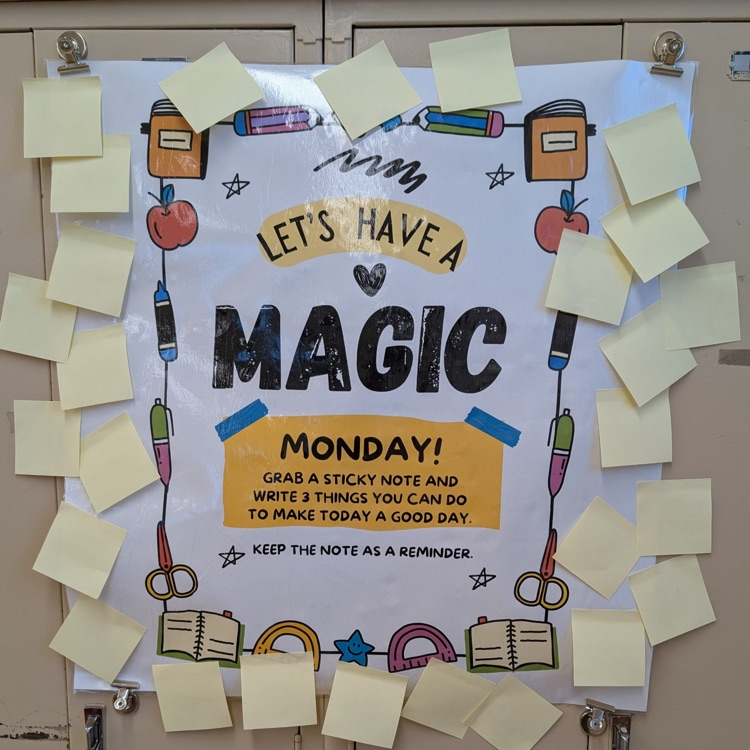 LET'S HAVE A
MAGIC
MONDAY!
GRAB A STICKY NOTE AND
WRITE 3 THINGS YOU CAN DO
TO MAKE TODAY A GOOD DAY.
KEEP THE NOTE AS A REMINDER.